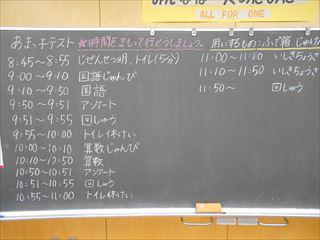 ALL FOR ONE
あまっ子テスト ☆時間をまもって行どうしましょう。 用いするもの:ふで箱
8:45~8:55 じぜんせつ明、トイレ(5分)
9:00~9:10 国語じゅんび
9:10~9:50 国語
9:50~9:51 アンケート
9:51~9:55 回しゅう
9:55~10:00 トイレ休けい
10:00~10:10 算数じゅんび
10:10~10:50 算数
10:50~10:51 アンケート
10:51~10:55 回しゅう
10:55~11:00 トイレ休けい
11:00~11:10 いしきちょうさ
11:10~11:50 いしきちょうさ
11:50~ 回しゅう